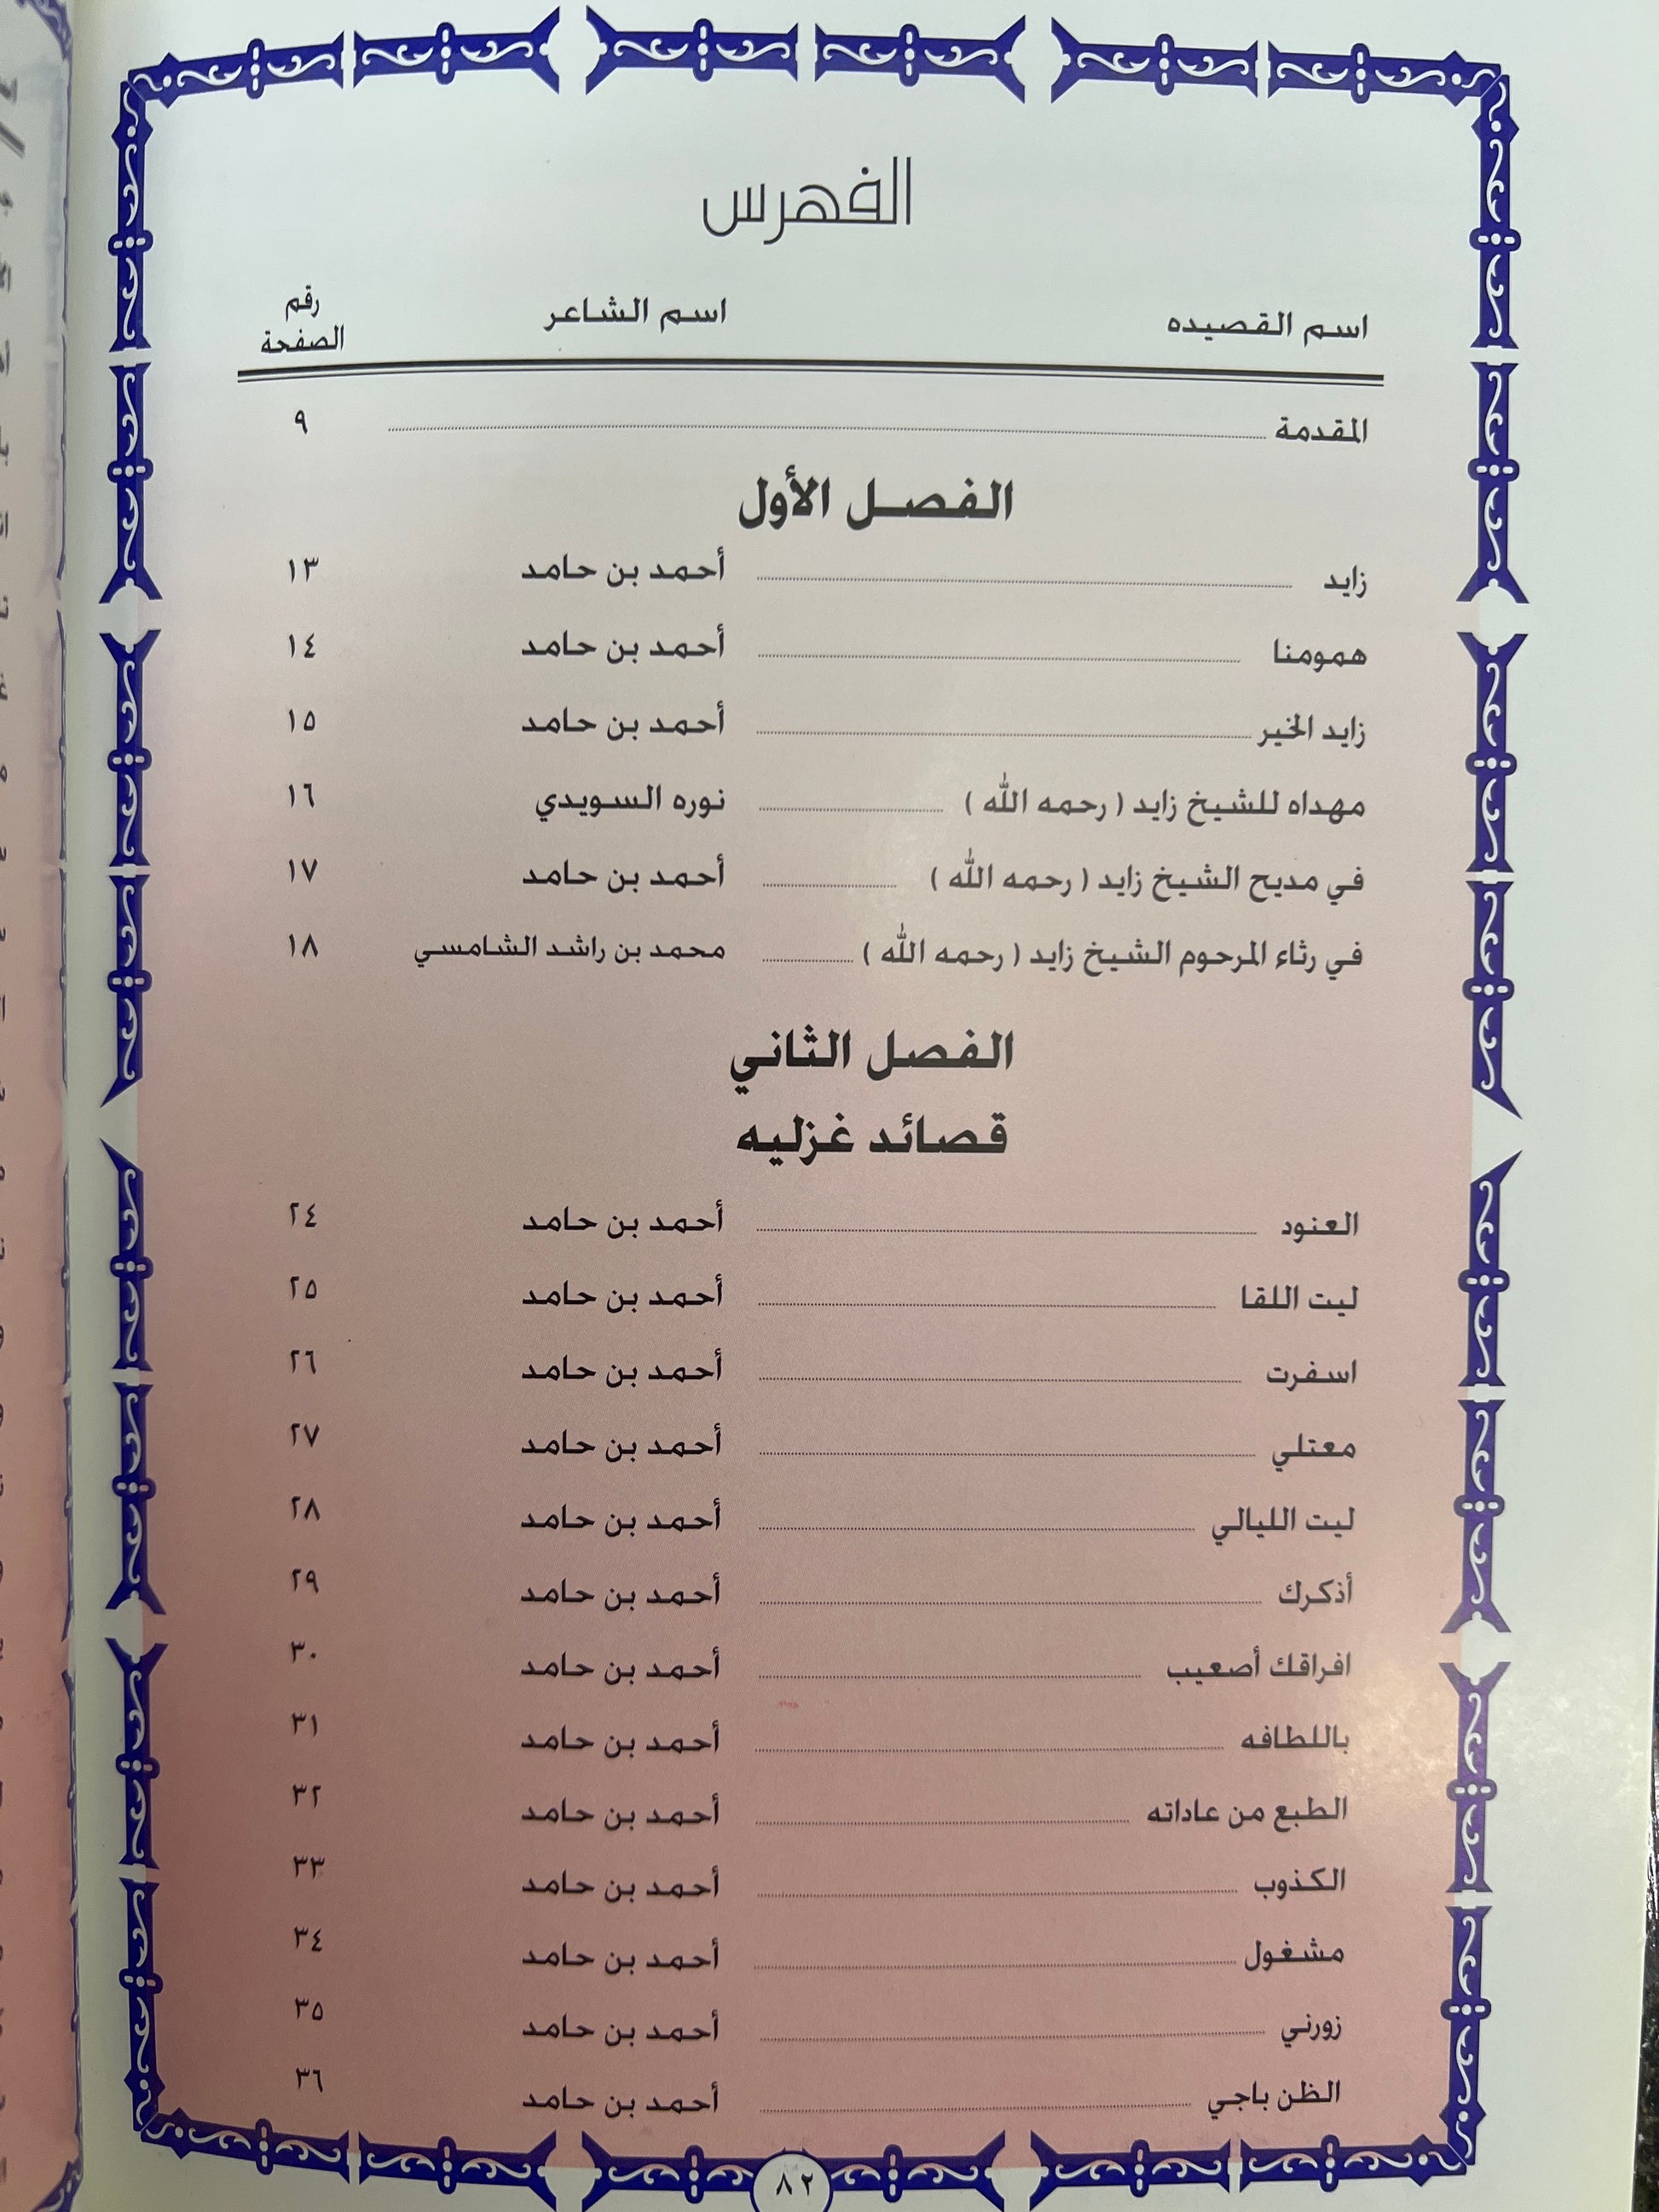 الفهرس
اسم القصيده اسم الشاعر رقم الصفحة
المقدمة ٩
الفصل الأول
زايد أحمد بن حامد ١٣
همومنا أحمد بن حامد ١٤
زايد الخير أحمد بن حامد ١٥
مهداه للشيخ زايد ( رحمه الله ) نوره السويدي ١٦
في مديح الشيخ زايد ( رحمه الله ) أحمد بن حامد ١٧
في رثاء المرحوم الشيخ زايد ( رحمه الله ) محمد بن راشد الشامسي ١٨
الفصل الثاني
قصائد غزليه
العنود أحمد بن حامد ٢٤
ليت اللقا أحمد بن حامد ٢٥
اسفرت أحمد بن حامد ٢٦
معتلي أحمد بن حامد ٢٧
ليت الليالي أحمد بن حامد ٢٨
أذكرك أحمد بن حامد ٢٩
افراقك أصعيب أحمد بن حامد ٣٠
باللطافه أحمد بن حامد ٣١
الطبع من عاداته أحمد بن حامد ٣٢
الكذوب أحمد بن حامد ٣٣
مشغول أحمد بن حامد ٣٤
زورني أحمد بن حامد ٣٥
الظن باجي أحمد بن حامد ٣٦
٨٢